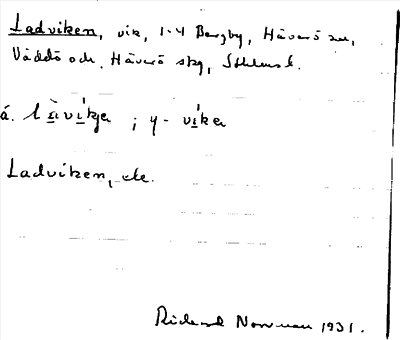 Ladviken, vik, 1-4 Bergby, Häverö sn,
Väddö och Häverö skg, Sthlms l.
á. làvíkja ; y - víka
Ladviken, -de.
Rickard Norrman 1931.